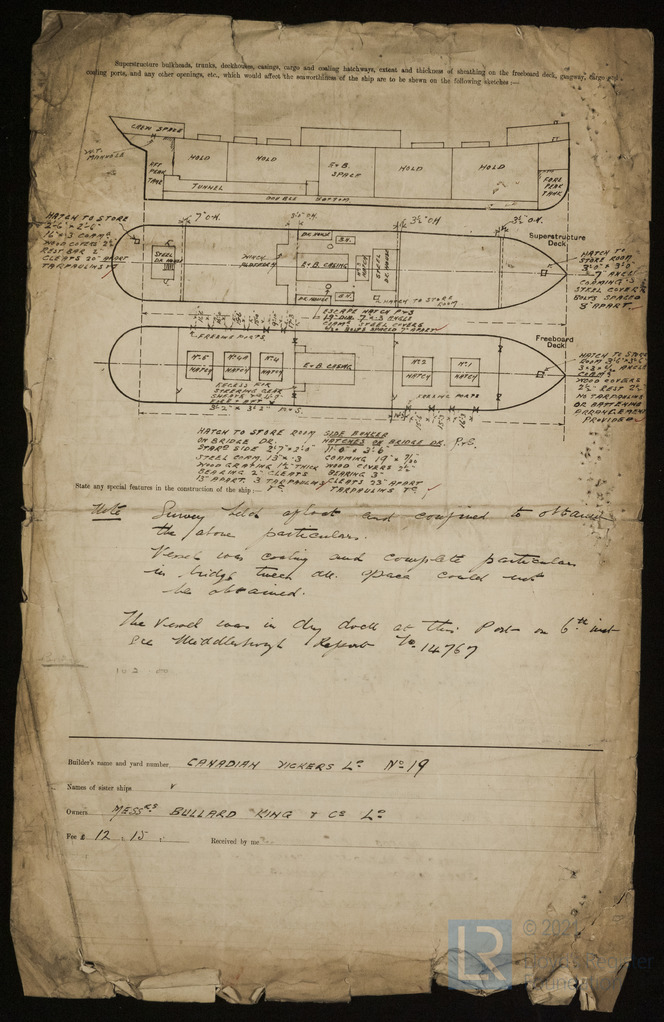 Superstructure bulkheads, trunks, deckhouses, casings, cargo and coaling hatchways, extent and thickness of sheathing on the freeboard deck, gangway, cargo and
coaling ports, and any other openings, etc., which would affect the seaworthiness of the ship are to be shewn on the following sketches:—
CREW SPACE
W.T. MANHOLE
AFT PEAK TANK
HOLD
HOLD
E & B. SPACE
HOLD
HOLD
TUNNEL
DOUBLE BOTTOM
FORE PEAK TANK
HATCH TO STORE
2'-6" × 2'-6"
WOOD COVERS 2½"
REST BAR 2"
CLEATS 20" APART
TARPAULINS
7" O.H.
3½" O.H.
3½" O.H.
Superstructure
Deck
STEEL DK HOUSE
WINCH PLATFORM
DK HOUSE
B.H.
E & B. CASING
DK HOUSE
B.H.
HATCH
STEEL DK HOUSE
HATCH TO STORE ROOM
HATCH TO
STORE ROOM
3'-0" × 3'-0"
7" ANGLE
COAMING
STEEL COVER
BOLTS SPACED
8" APART
ESCAPE HATCH P & S
19" DIA. 7" × 3 ANGLE
COAMG STEEL COVERS
BOLTS SPACED 7" APART
FREEING PORTS
Freeboard
Deck
No 5 HATCH
No 4A HATCH
No 4 HATCH
E & B CASING
No 2 HATCH
No 1 HATCH
RECESS FOR
STEERING GEAR
3'-2" × 3'-2" P & S.
FREEING PORTS
HATCH TO STORE
ROOM
WOOD COVERS
2½" REST 2½"
NO TARPAULINS
OR BATTENING
ARRANGEMENT
PROVIDED
HATCH TO STORE ROOM
ON BRIDGE DK.
STARD SIDE 2'-7" × 2'-6"
STEEL COAM. 15" × .3
WOOD GRATING 1½" THICK
BEARING 2" CLEATS
15" APART. 3 TARPAULINS
SIDE BUNKER
HATCHES ON BRIDGE DK. P & S.
11'-0" × 2'-6"
COAMING 19" ×
WOOD COVERS 2½"
BEARING 3"
CLEATS 23" APART
TARPAULINS
State any special features in the construction of the ship:—
Note Survey held afloat and confined to obtain
the above particulars.
Vessel was coaling and complete particulars
in bridge tween dk. space could not
be obtained.
The Vessel was in dry dock at this Port on 6th inst
See Middlesbrough Report No. 14767
Builder's name and yard number CANADIAN VICKERS LD No 19
Names of sister ships
Owners MESSRS BULLARD KING & CO LD
Fee £ 12 . 15 .
Received by me
LR
© 2021
Lloyd's Register
Foundation